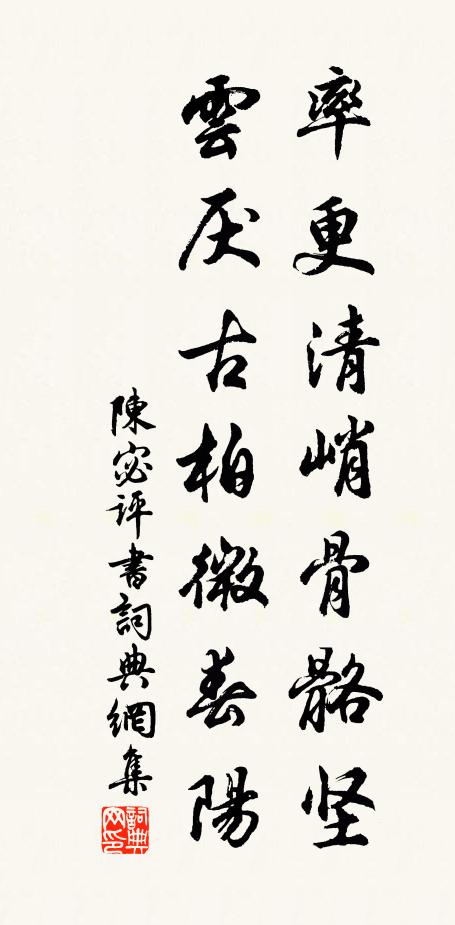 率更清峭骨骼坚
雲厌古柏微春陽
陳宓评書詞典網集
詞典網印